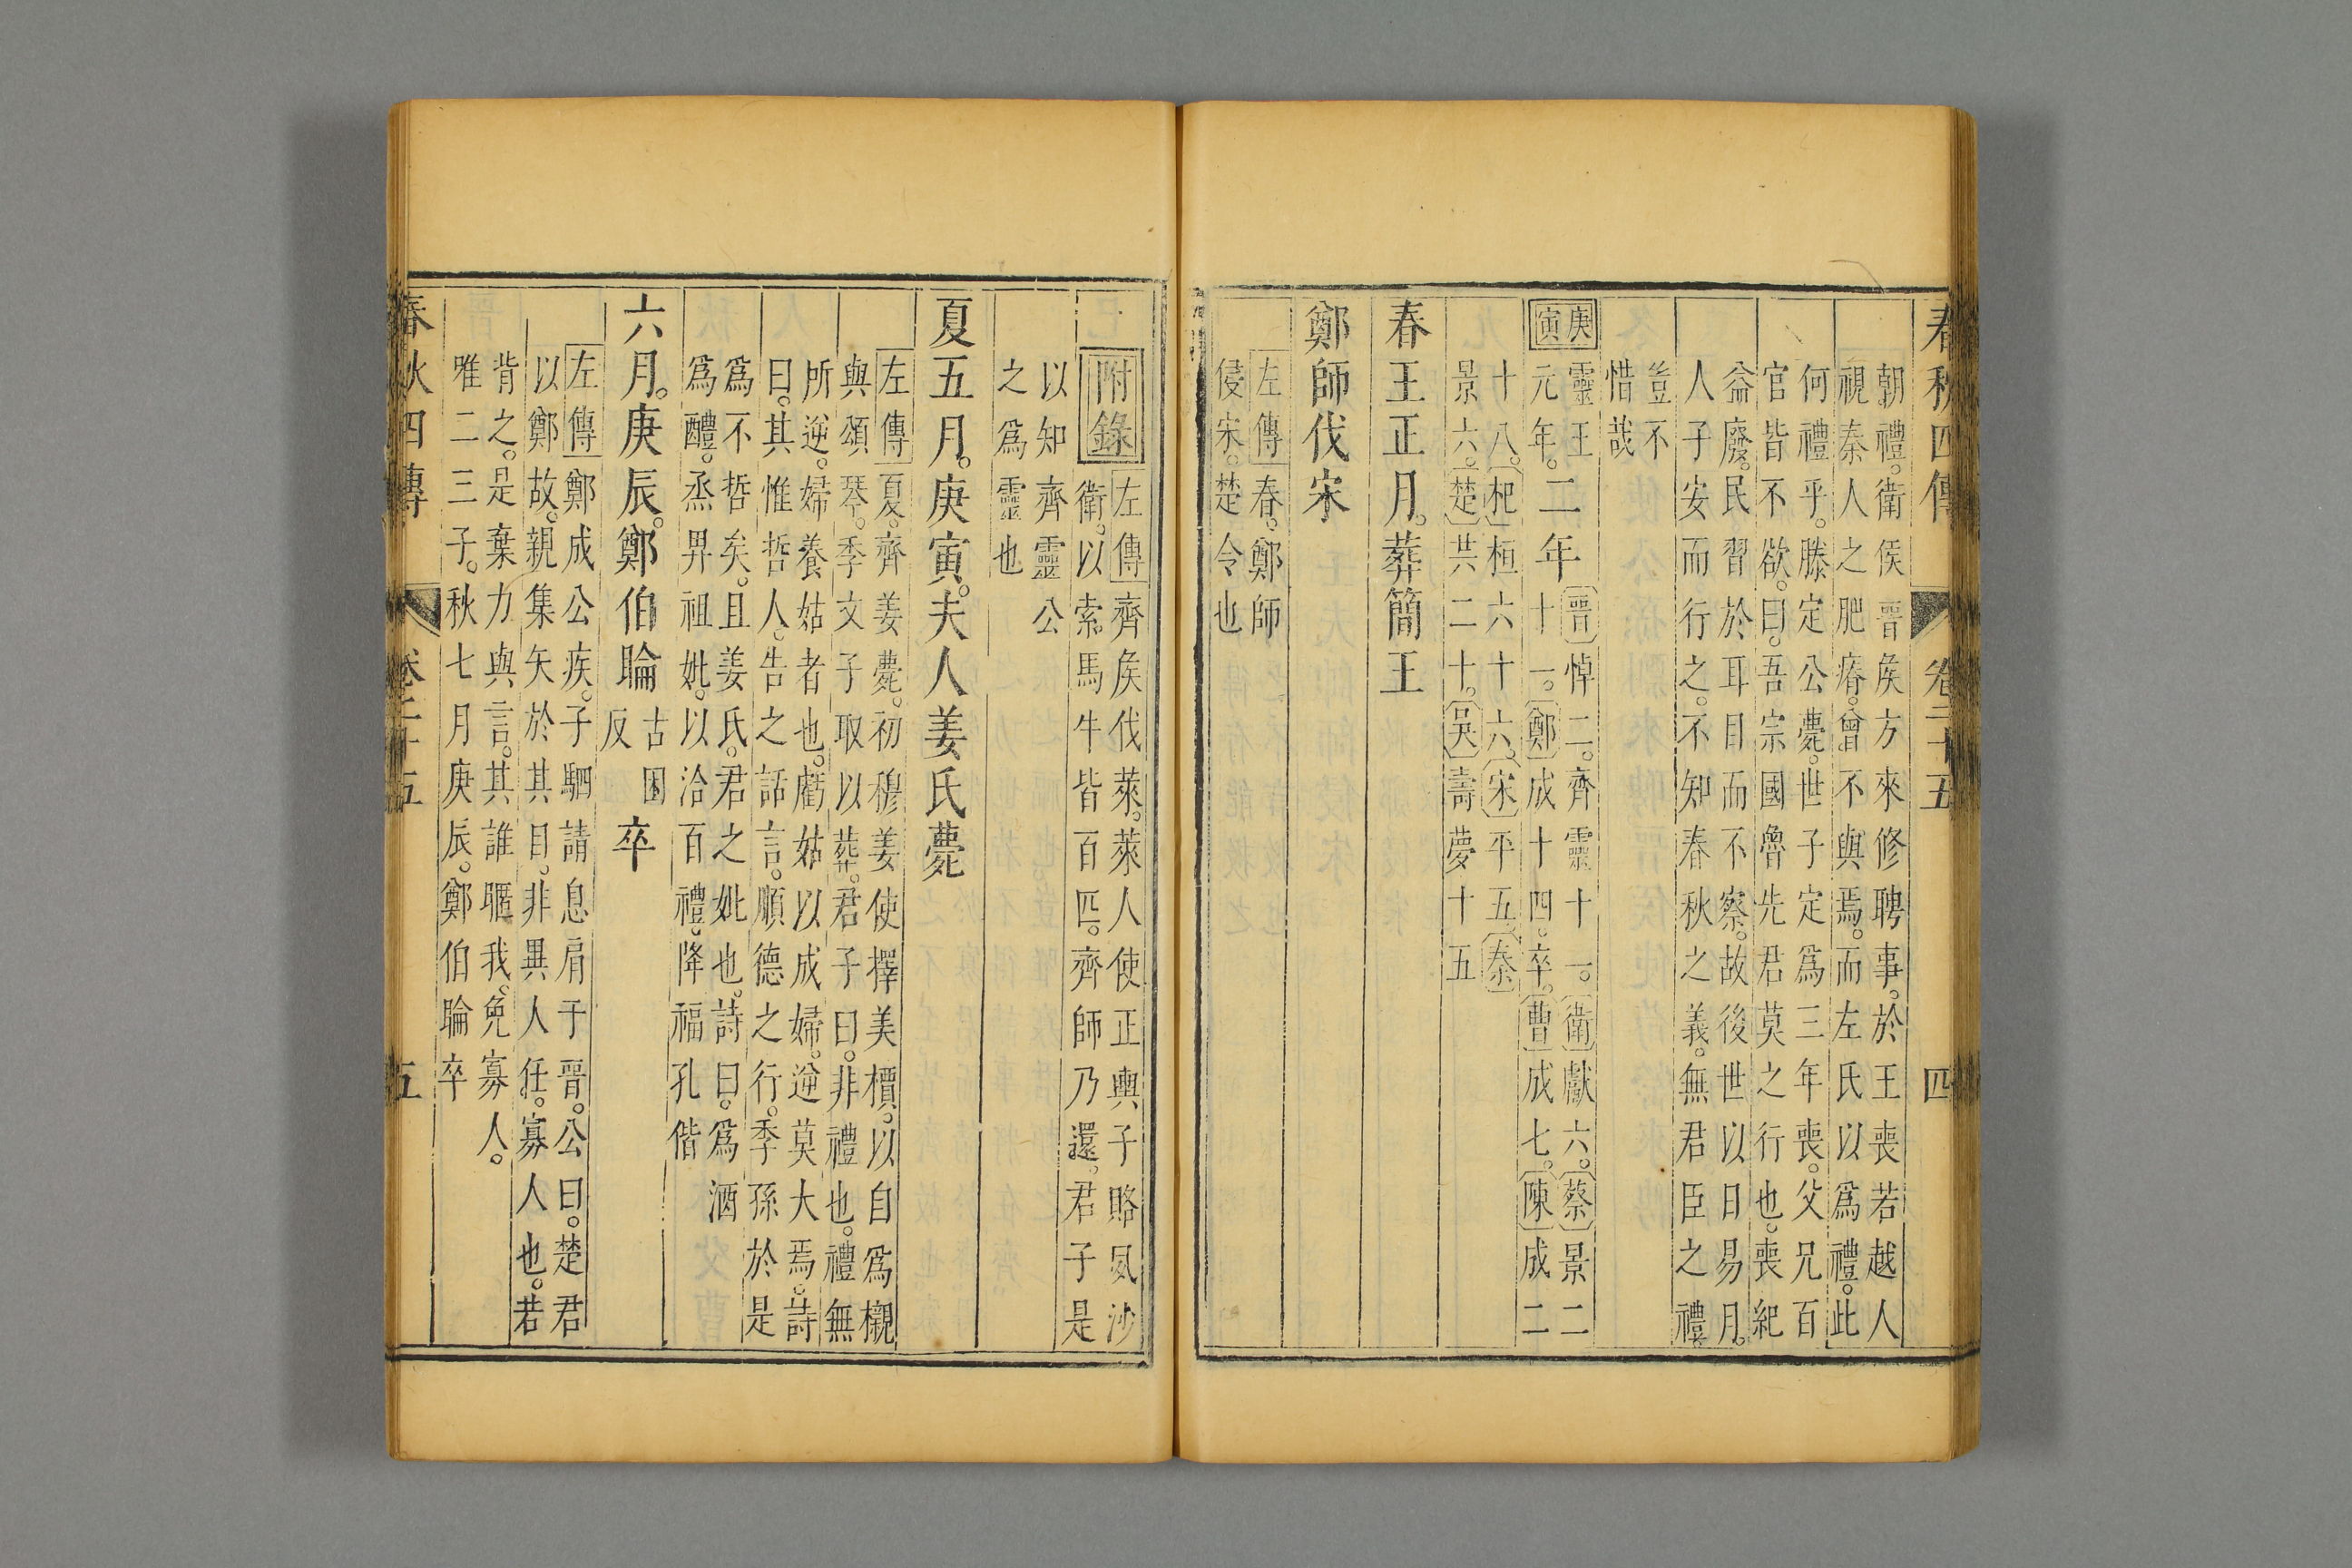 春秋四傳 卷二十五 四
朝禮。衛侯晉矦方來修聘事。於王喪若越人
視秦人之肥瘠。曾不與焉。而左氏以爲禮。此
何禮乎。滕定公薨。世子定爲三年喪。父兄百
官皆不欲。曰。吾宗國魯先君莫之行也。喪紀
益廢。民習於耳目而不察。故後世以日易月。
人子安而行之。不知春秋之義。無君臣之禮
豈不
惜哉
庚寅
靈王
元年。
二年
晉悼二。齊靈十一。衛獻六。蔡景二
十一。鄭成十四。卒。曹成七。陳成二
十八。杞桓六十六。宋平五。秦
景六。楚共二十。吳壽夢十五
春王正月。葬簡王
鄭師伐宋
左傳春。鄭師
侵宋。楚令也
附錄
左傳齊矦伐萊。萊人使正輿子賂夙沙
衛。以索馬牛皆百匹。齊師乃還。君子是
以知齊靈公
之爲靈也
夏五月。庚寅。夫人姜氏薨
左傳夏。齊姜薨。初穆姜使擇美檟。以自爲櫬
與頌琴。季文子取以葬。君子曰。非禮也。禮無
所逆。婦養姑者也。虧姑以成婦。逆莫大焉。詩
曰。其惟哲人。告之話言。順德之行。季孫於是
爲不哲矣。且姜氏。君之妣也。詩曰。爲酒
爲醴。烝畀祖妣。以洽百禮。降福孔偕
六月。庚辰。鄭伯睔古困反卒
左傳鄭成公疾。子駟請息肩于晉。公曰。楚君
以鄭故。親集矢於其目。非異人任。寡人也。若
背之。是棄力與言。其誰暱我。免寡人。
唯二三子。秋七月庚辰。鄭伯睔卒
春秋四傳 卷二十五 五